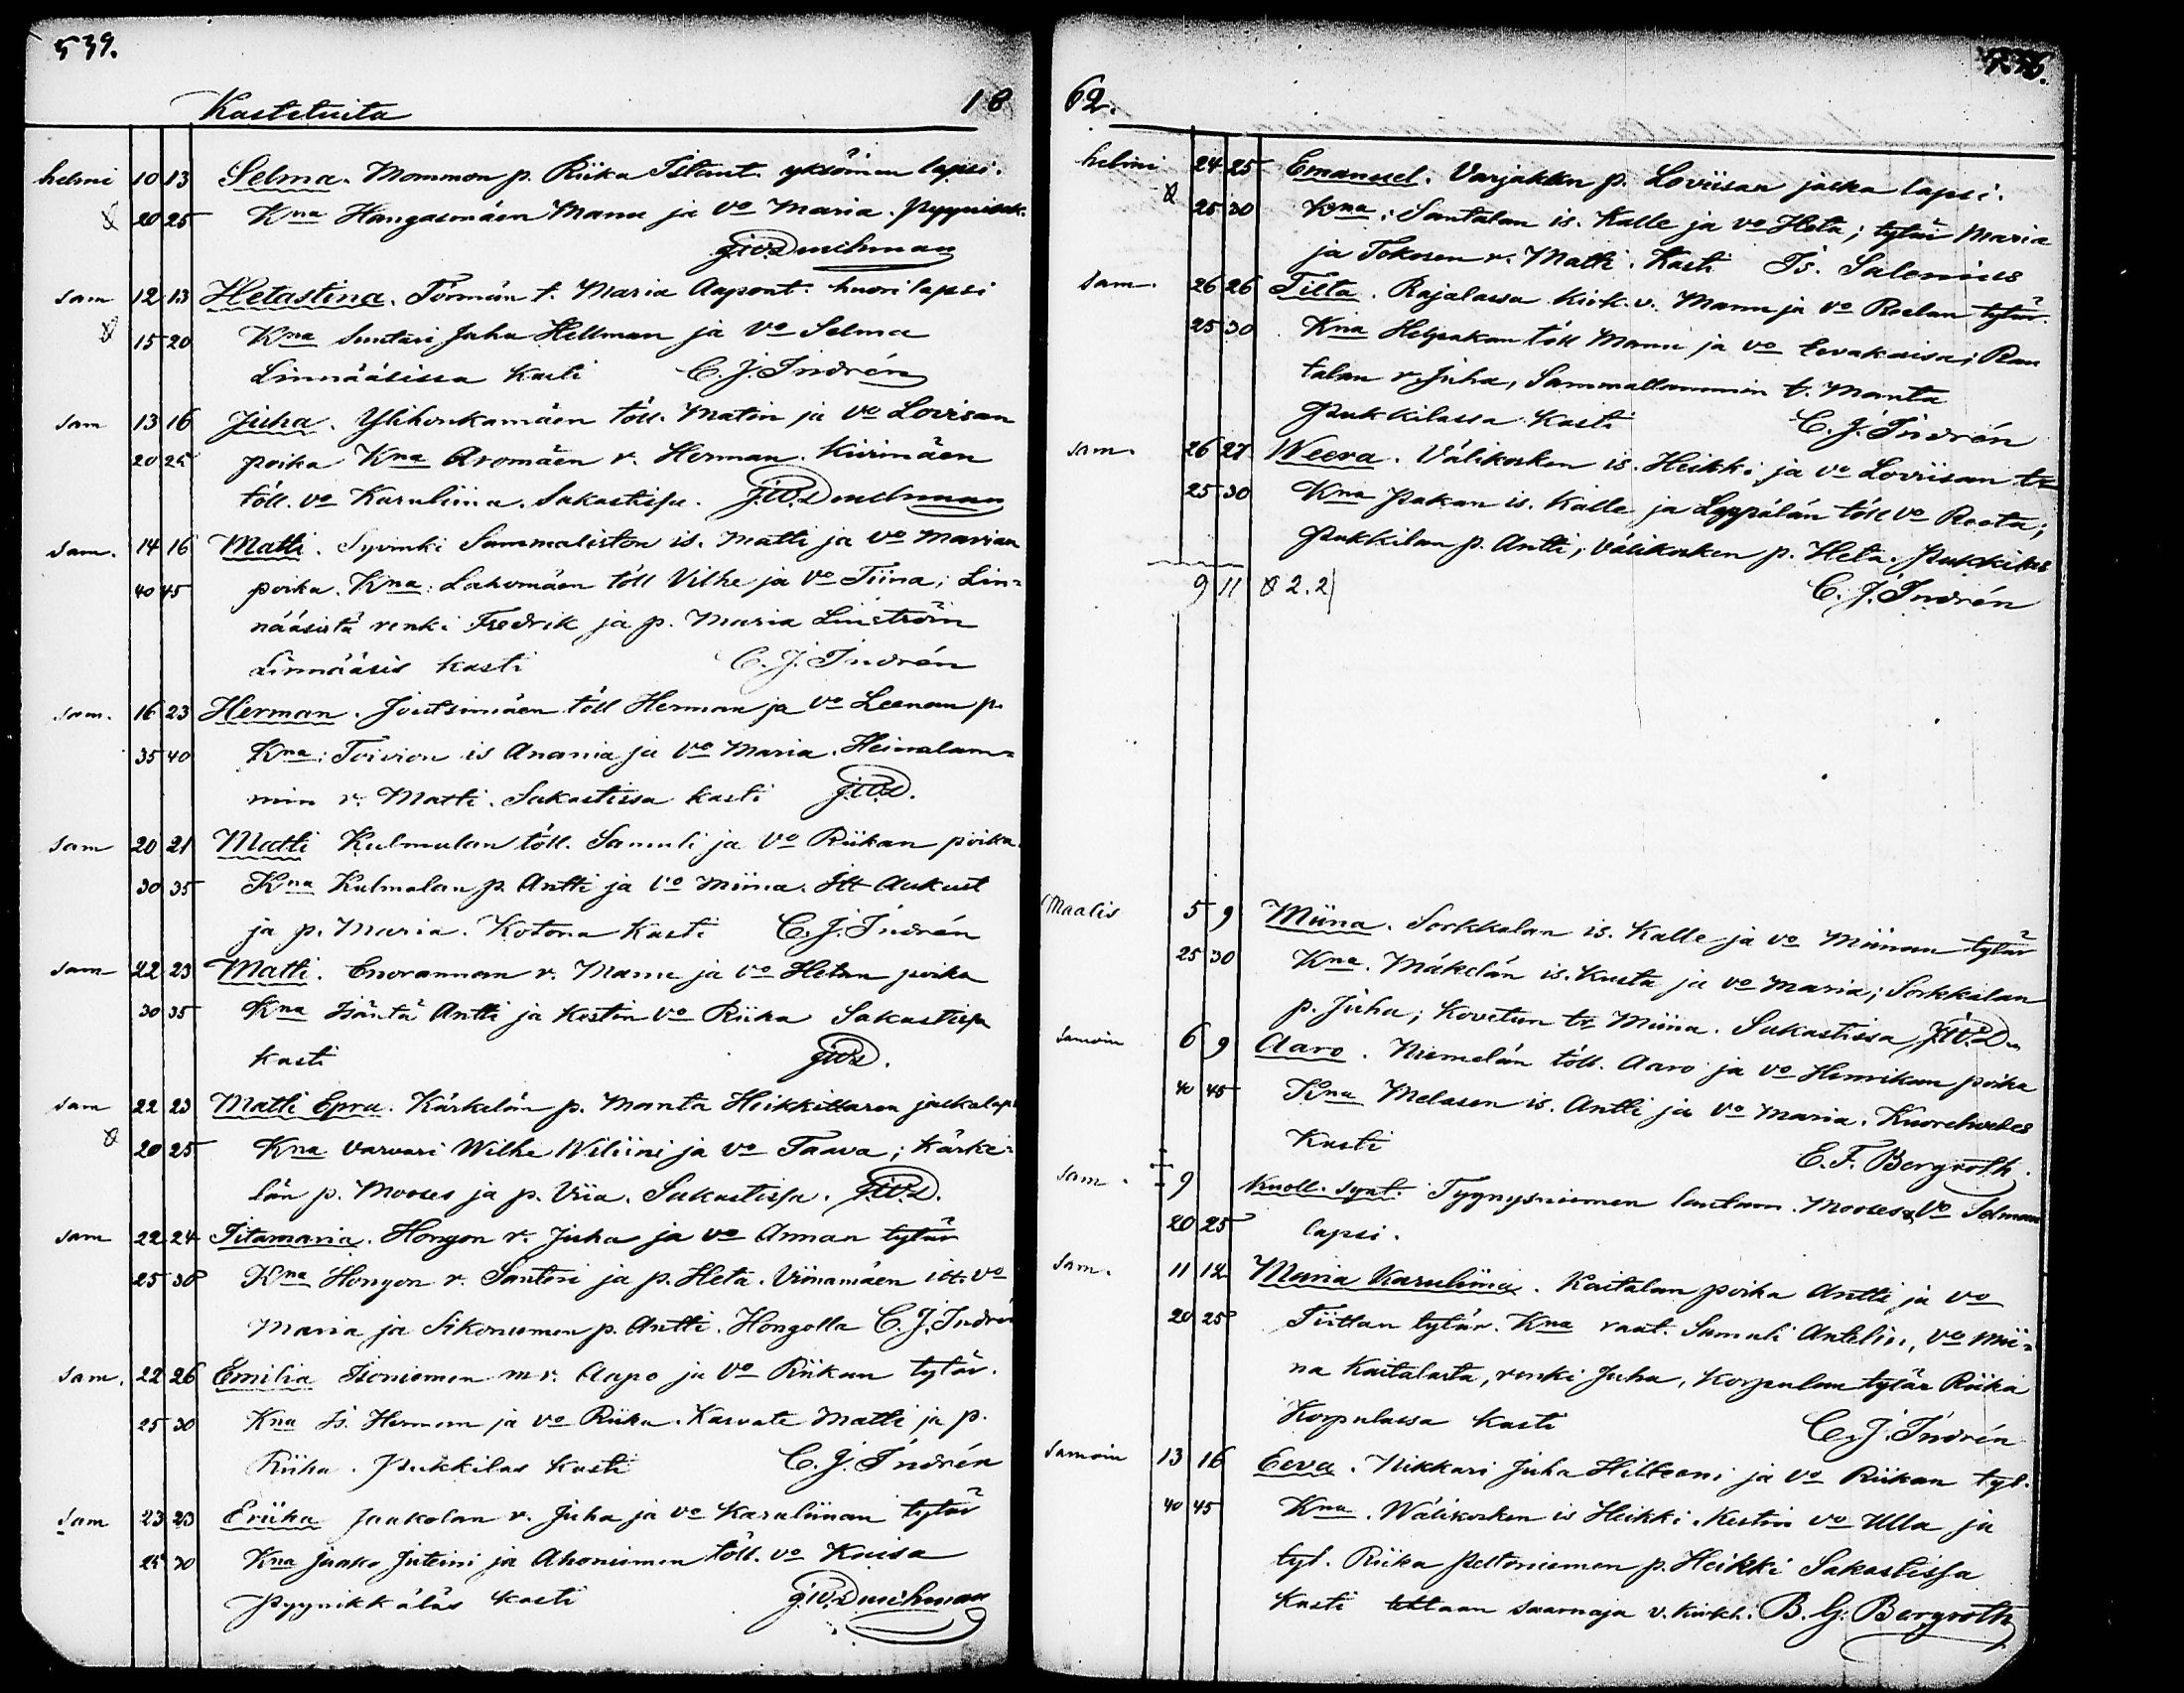 539.
Kastetuita 18
helmi 10 13 Selma. Mommon p. Riika Istant. yksöinen lapsi.
20 25 Kna Hangasmäen Manu ja vo Maria. Pyynikk.
sam 12 13 Hetastina. Törmän t. Maria Aapont. huorilapsi
15 20 Kna Suntari Juha Hellman ja vo Selma
Linnääsissa kasti C. J. Indrén
sam 13 16 Juha. Ylihonkamäen töll. Matin ja vo Lovisan
20 25 poika Kna Aromäen r. Herman. Kiirimäen
töll. vo Karuliina. Sakastissa.
sam. 14 16 Matti. Sammaliston is. Matti ja vo Marian
40 45 poika. Kna: Lahomäen töll Vilhe ja vo Tiina; Lin-
nääsistä renki Fredrik ja p. Maria Linström
Linnääsis kasti C. J. Indrén
sam. 16 23 Herman. Joutsimäen töll Herman ja vo Leenan p.
35 40 Kna: Toivion is Anania ja vo Maria. Heinalam-
min r. Matti. Sakastissa kasti
sam 20 21 Matti Kulmalan töll. Samuli ja vo Riikan poika.
30 35 Kna Kulmalan p. Antti ja vo Miina. Itt Aukust
ja p. Maria. Kotona kasti C. J. Indrén
sam 22 23 Matti. Enorannan r. Manu ja vo Hetan poika
30 35 Kna Isäntä Antti ja Kestin vo Riika Sakastissa
kasti
sam 22 23 Matti Epra. Kärkelän p. Manta Heikkittaren jaskalaps
20 25 Kna varvari Wilhe Wiliini ja vo Taava; Kärke-
län p. Mooses ja p. Viia. Sakastissa.
sam 22 24 Titamaria. Hongon r. Juha ja vo Annan tytär
25 30 Kna Hongon r. Santeri ja p. Heta. Viinamäen itt. vo
Maria ja Sikoniemen p. Antti. Hongolla C. J. Indrén
sam. 22 26 Emilia Isoniemen m r. Aapo ja vo Riikan tytär.
25 30 Kna Is. Herman ja vo Riika. Kasvate Matti ja p.
Riika. Pukkilas kasti C. J. Indrén
sam 23 23 Eriika Jaakolan r. Juha ja vo Karuliinan tytär
25 30 Kna Jaako Juteini ja Ahoniemen töll. vo Kaisa
Pyynikkäläs kasti
62.
helmi 24 25 Emanuel. Varjakkan p. Loviisan jaska lapsi.
25 30 Kna: Santalan is. Kalle ja vo Heta; tytär Maria
ja Tokosen r. Matti. Kasti Is. Salenius
sam. 26 26 Tilta. Rajalassa kirk. v. Manu ja vo Reelan tytär.
25 30 Kna Helpakan töll Manu ja vo Eevakaisa; Rau
talan r. Juha, Sammallammin t. Manta
Pukkilassa kasti C. J. Indrén
sam. 26 27 Weera. Välikosken is. Heikki ja vo Loviisan tr
25 30 Kna Pakan is. Kalle ja Leppälän töll vo Reeta;
Pukkilan p. Antti; Välikosken p. Heta. Pukkilas
9 11 2.2 C. J. Indrén
Maalis 5 9 Miina. Sorkkalan is. Kalle ja vo Miinan tytär
25 30 Kna. Mäkelän is. Kusta ja vo Maria; Sorkkalan
p. Juha; Kovetun tr Miina. Sakastissa
samoin 6 9 Aaro. Niemelän töll. Aaro ja vo Henrikan poika
40 45 Kna Melasen is. Antti ja vo Maria. Kuorehvedes
Kasti E. F. Bergroth.
sam. 9 Kuoll. synt. Tyynysniemen lautam. Mooses vo Selman
20 25 lapsi.
sam. 11 12 Maria Karuliina. Kaitalan poika Antti ja vo
20 25 Tiittan tytär. Kna raat. Samuli Antelin, vo Mii-
na Kaitalasta, renki Juha, Korpulan tytär Riika
Korpulassa kasti C. J. Indrén
samoin 13 16 Eeva. Nikkari Juha Hilteeni ja vo Riikan tyt.
40 45 Kna. Wälikosken is Heikki. Kestin vo Ulla ja
tyt. Riika Peltoniemen p. Heikki Sakastissa
kasti tehtaan saarnaja v. kirkh. B. G. Bergroth